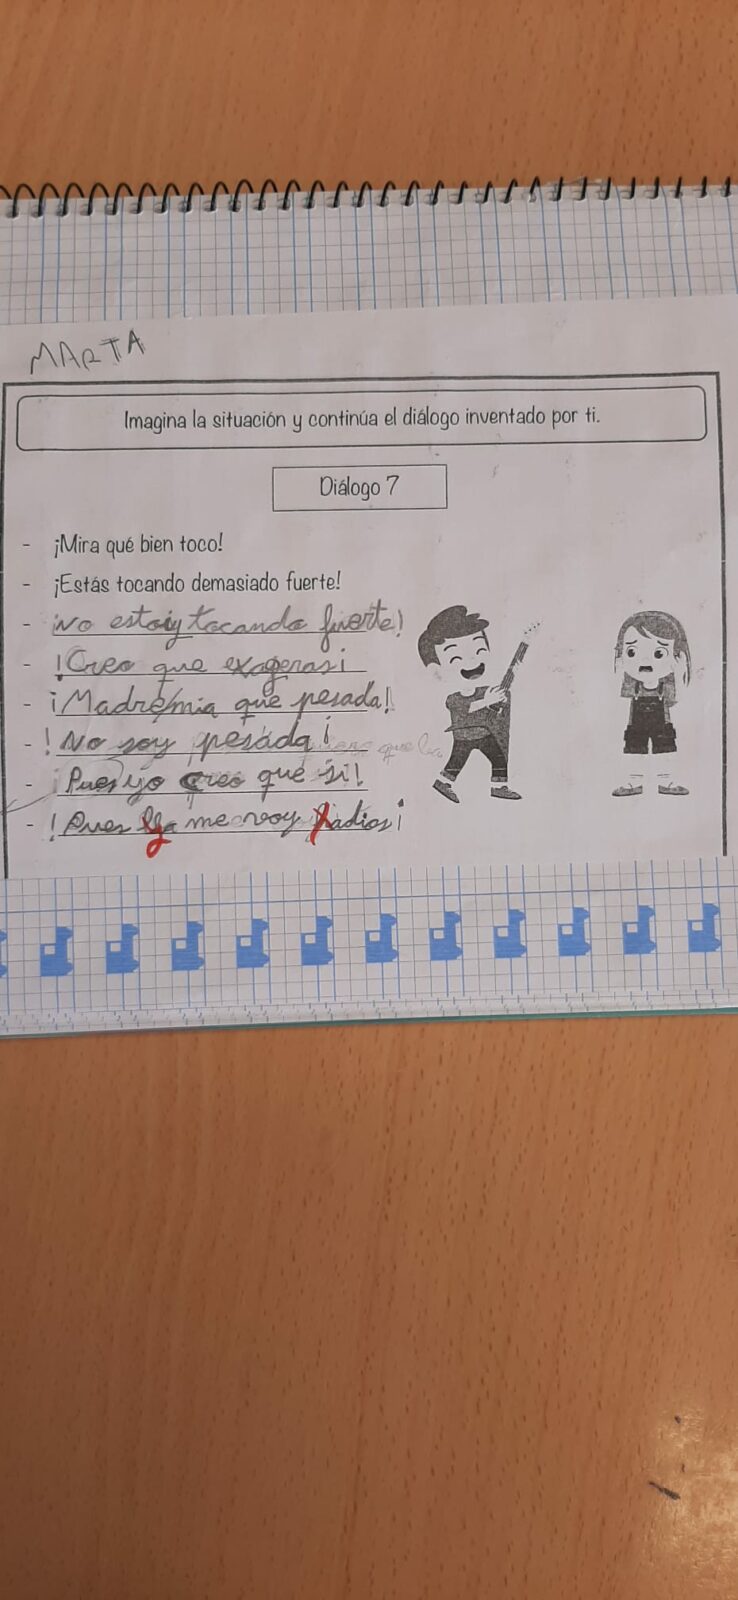 MARTA
Imagina la situación y continúa el diálogo inventado por ti.
Diálogo 7
- ¡Mira qué bien toco!
- ¡Estás tocando demasiado fuerte!
- ¡No estoy tocando fuerte!
- !Creo que exageras¡
- ¡Madre/mia que pesada!
- ! No soy pesada¡
- ¡Pues yo creo que si!
- ! Pues ya me voy adios¡